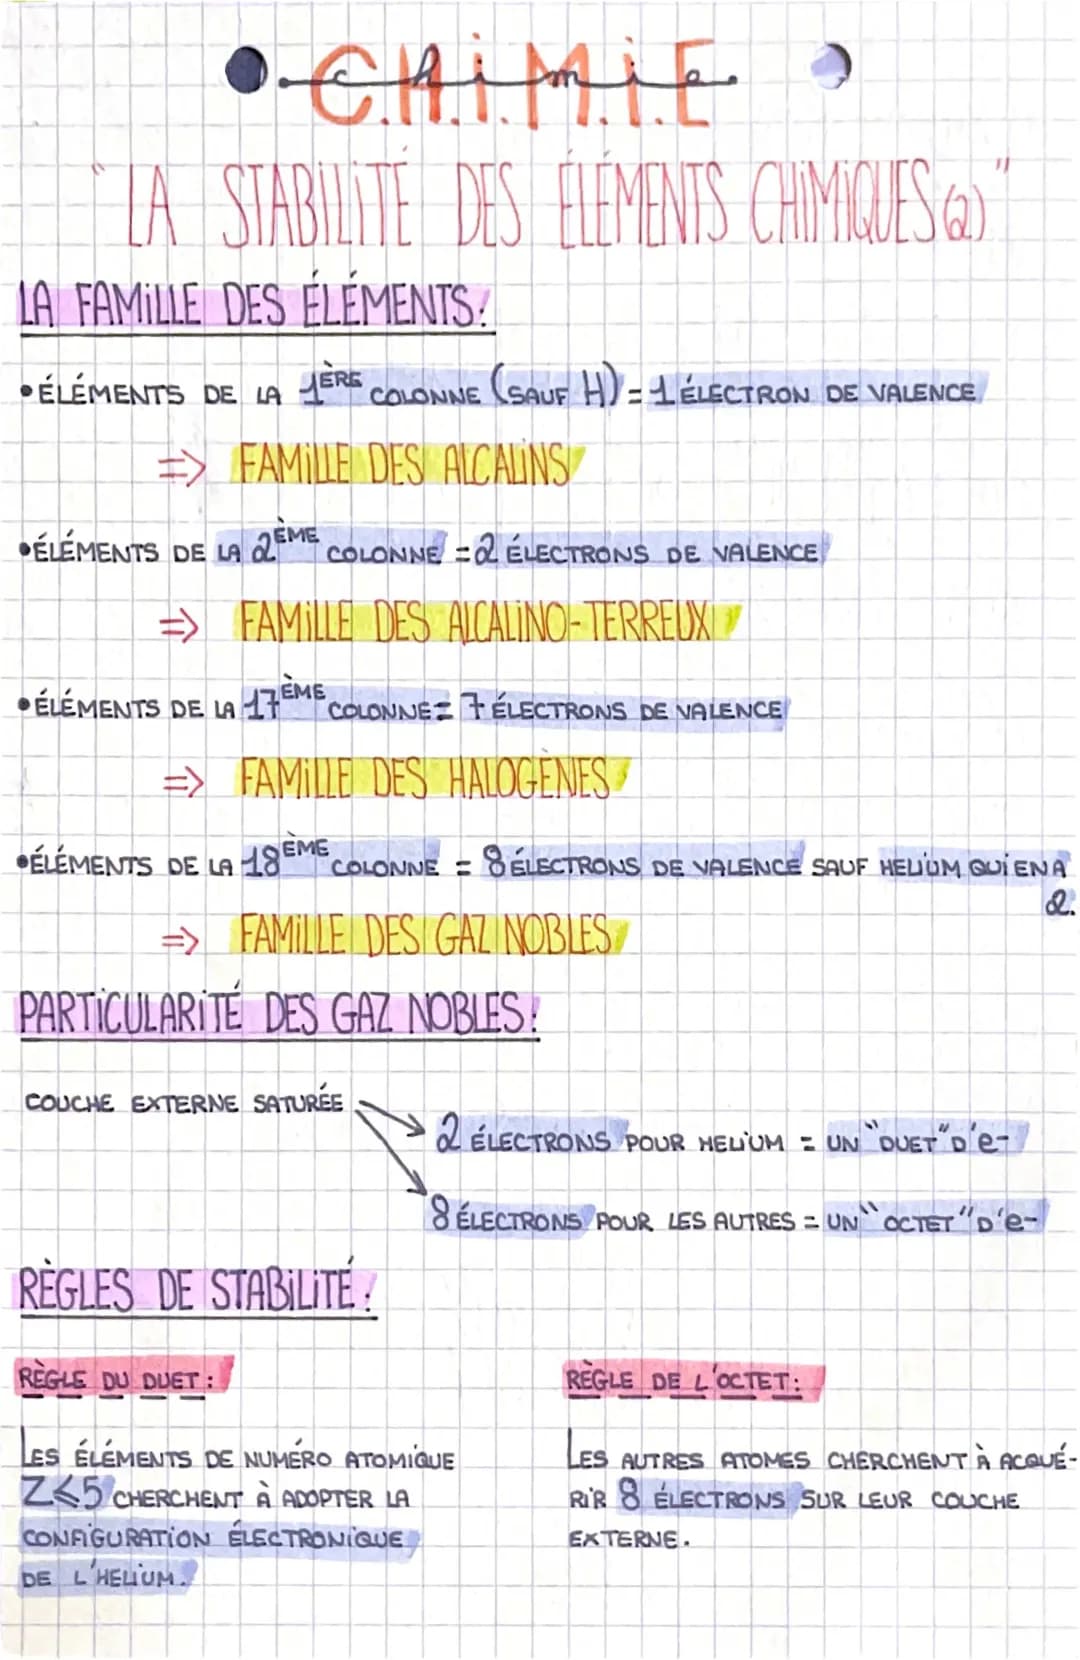 C.H.i.M.i.E
chimie
"LA STABiLiTÉ DES ÉLÉMENTS CHiMiQUES (2)"
LA FAMiLLE DES ÉLÉMENTS:
•ÉLÉMENTS DE LA 1ÈRE COLONNE (SAUF H) = 1 ÉLECTRON DE VALENCE
=> FAMiLLE DES ALCALiNS
•ÉLÉMENTS DE LA 2ÈME COLONNE = 2 ÉLECTRONS DE VALENCE
=> FAMiLLE DES ALCALiNO-TERREUX
•ÉLÉMENTS DE LA 17ÈME COLONNE = 7 ÉLECTRONS DE VALENCE
=> FAMiLLE DES HALOGÈNES
•ÉLÉMENTS DE LA 18ÈME COLONNE = 8 ÉLECTRONS DE VALENCE SAUF HELiUM QUi EN A
2.
=> FAMiLLE DES GAZ NOBLES
PARTiCULARiTÉ DES GAZ NOBLES:
COUCHE EXTERNE SATURÉE
2 ÉLECTRONS POUR HELiUM = UN "DUET" D'e-
8 ÉLECTRONS POUR LES AUTRES = UN "OCTET" D'e-
RÈGLES DE STABiLiTÉ:
RÈGLE DU DUET:
LES ÉLÉMENTS DE NUMÉRO ATOMiQUE
Z⩽5 CHERCHENT À ADOPTER LA
CONFiGURATiON ÉLECTRONiQUE
DE L'HELiUM.
RÈGLE DE L'OCTET:
LES AUTRES ATOMES CHERCHENT À ACQUÉ-
RiR 8 ÉLECTRONS SUR LEUR COUCHE
EXTERNE.